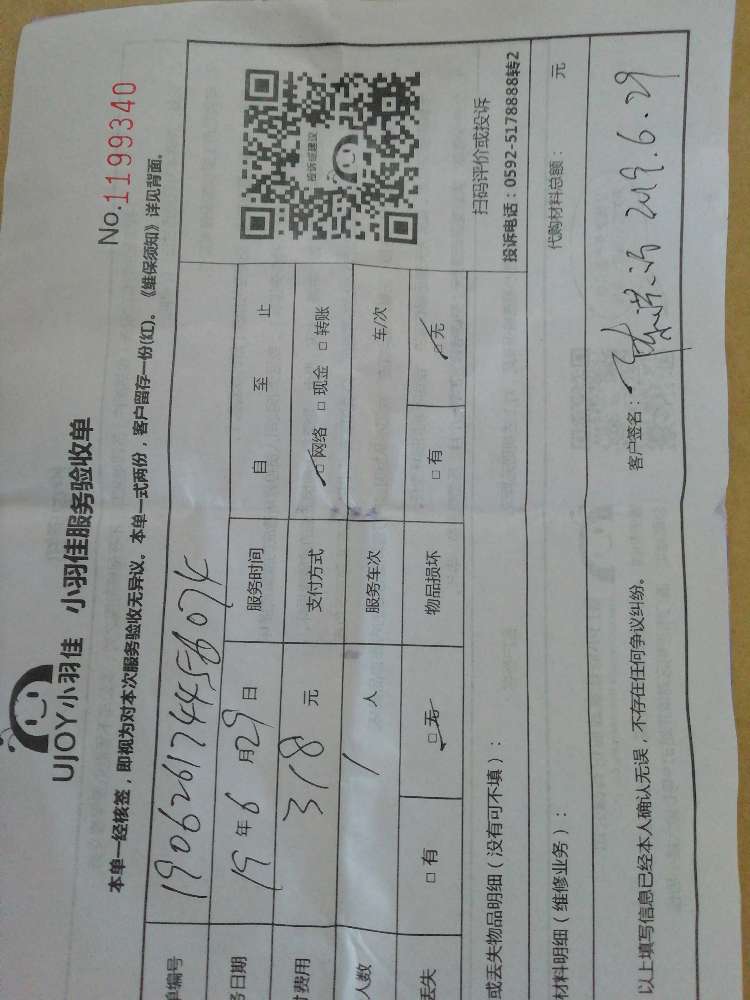 UJOY小羽佳 小羽佳服务验收单
No.1199340
本单一经核签，即视为对本次服务验收无异议。本单一式两份，客户留存一份(红)。《维保须知》详见背面。
单编号 190626174456074
务日期 19年6月29日 服务时间 自 至 止
费用 318元 支付方式 □网络 □现金 □转账
人数 1人 服务车次 车/次
丢失 □有 □无 物品损坏 □有 □无
投诉或建议
扫码评价或投诉
投诉电话：0592-5178888转2
或丢失物品明细（没有可不填）：
材料明细（维修业务）： 代购材料总额： 元
以上填写信息已经本人确认无误，不存在任何争议纠纷。 客户签名： 2019.6.29